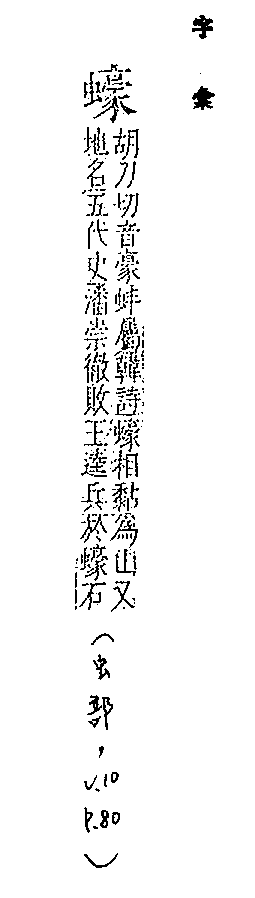 字彙
蠔
胡刀切音豪蚌屬韓詩蠔相黏為山又
地名五代史潘崇徹敗王逵兵於蠔石
（虫部，v.10 p.80）